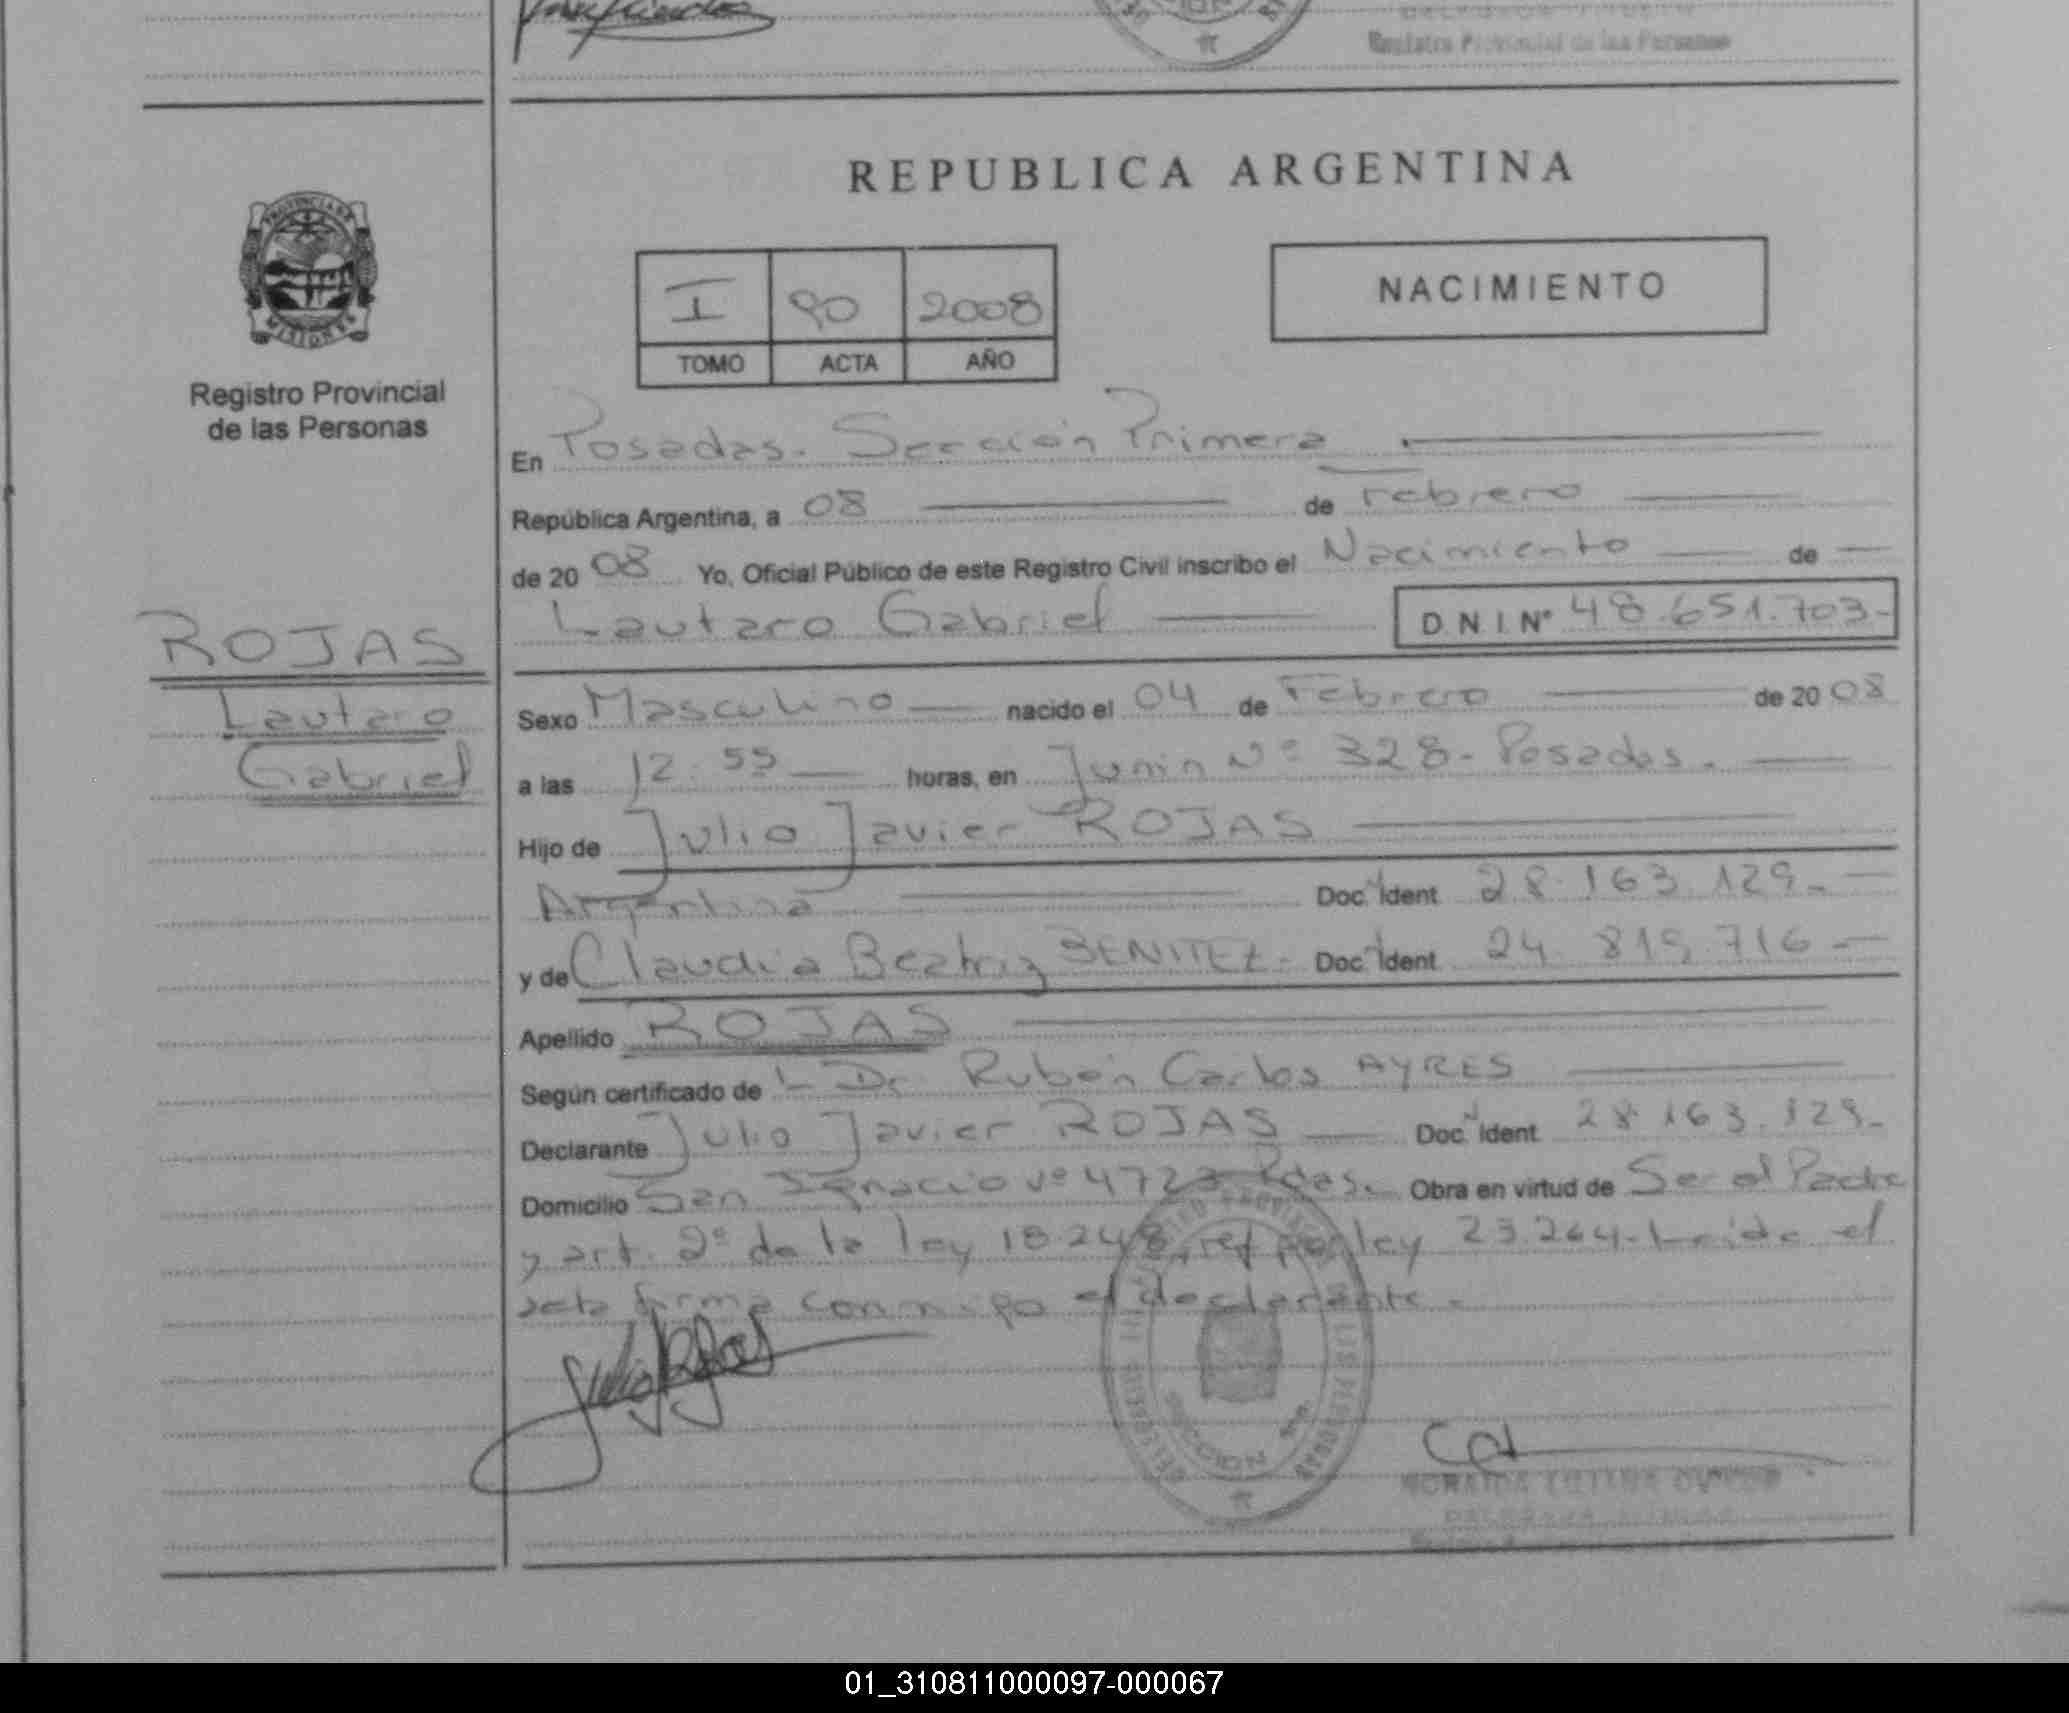 Registro Provincial de las Personas
REPUBLICA ARGENTINA
PROVINCIA DE
MISIONES
Registro Provincial
de las Personas
I 90 2008
TOMO ACTA AÑO
NACIMIENTO
En Posadas. Sección Primera.
República Argentina, a 08 de Febrero
de 20 08 Yo, Oficial Público de este Registro Civil inscribo el Nacimiento de
Lautaro Gabriel D.N.I. Nº 48.651.703-
ROJAS
Lautaro
Gabriel
Sexo Masculino nacido el 04 de Febrero de 20 08
a las 12.55 horas, en Junin Nº 328- Posadas.
Hijo de Julio Javier ROJAS
Argentina Doc. Ident 28.163.129.-
y de Claudia Beatriz BENITEZ- Doc. Ident 24.819.716-
Apellido ROJAS
Según certificado de L Dr. Rubén Carlos AYRES
Declarante Julio Javier ROJAS Doc. Ident 28.163.129-
Domicilio San Ignacio Nº 4723 Pdas. Obra en virtud de Ser el Padre
y art. 2º de la ley 18.248, ref por ley 23.264. Leida el
acta firma conmigo el declarante.
01_310811000097-000067